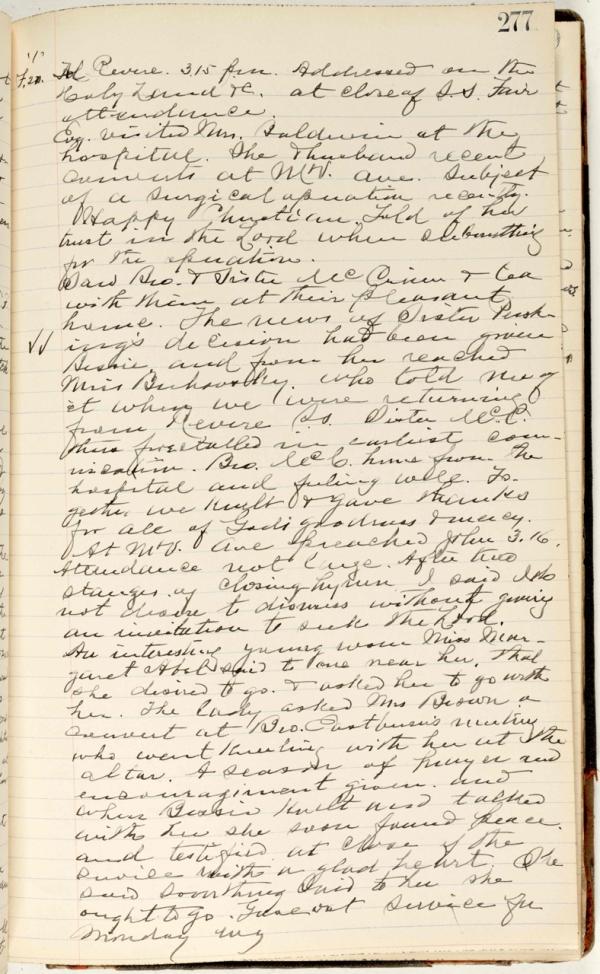 277
At Revere. 3.15 p.m. Addressed on the
Holy Land &c. at close of S.S. Fair
attendance
Evg. visited Mrs. Baldwin at the
hospital. She & husband recent
converts at Mt V. Ave. Subject
of a surgical operation recently.
Happy Christian. Told of her
trust in the Lord when submitting
for the operation.
Saw Bro. & Sister & tea
with them at their pleasant
home. The news of Sister
ing's decision had been given
Bessie, and from her reached
Miss who told me of
it when we were returning
from Revere S.S. Sister McC.
thus in earliest com-
. Bro. McC. home from the
hospital and feeling well. To-
gether we knelt & gave thanks
for all of God's goodness & mercy.
At Mt V. Ave preached John 3.16.
Attendance not large. After two
stanzas of closing hymn I said I do
not desire to dismiss without giving
an invitation to seek the Lord.
An interesting young wom Miss Mar-
garet Abel said to one near her, that
she desired to go. & asked her to go with
her. The lady asked Mrs Brown a
convert at Bro. meeting
who went kneeling with her at the
altar. A season of prayer and
encouragement given. and
when Bessie knelt and talked
with her she soon found peace.
and testified at close of the
service with a glad heart. She
said something said to her she
ought to go. Gave out service for
Monday evg